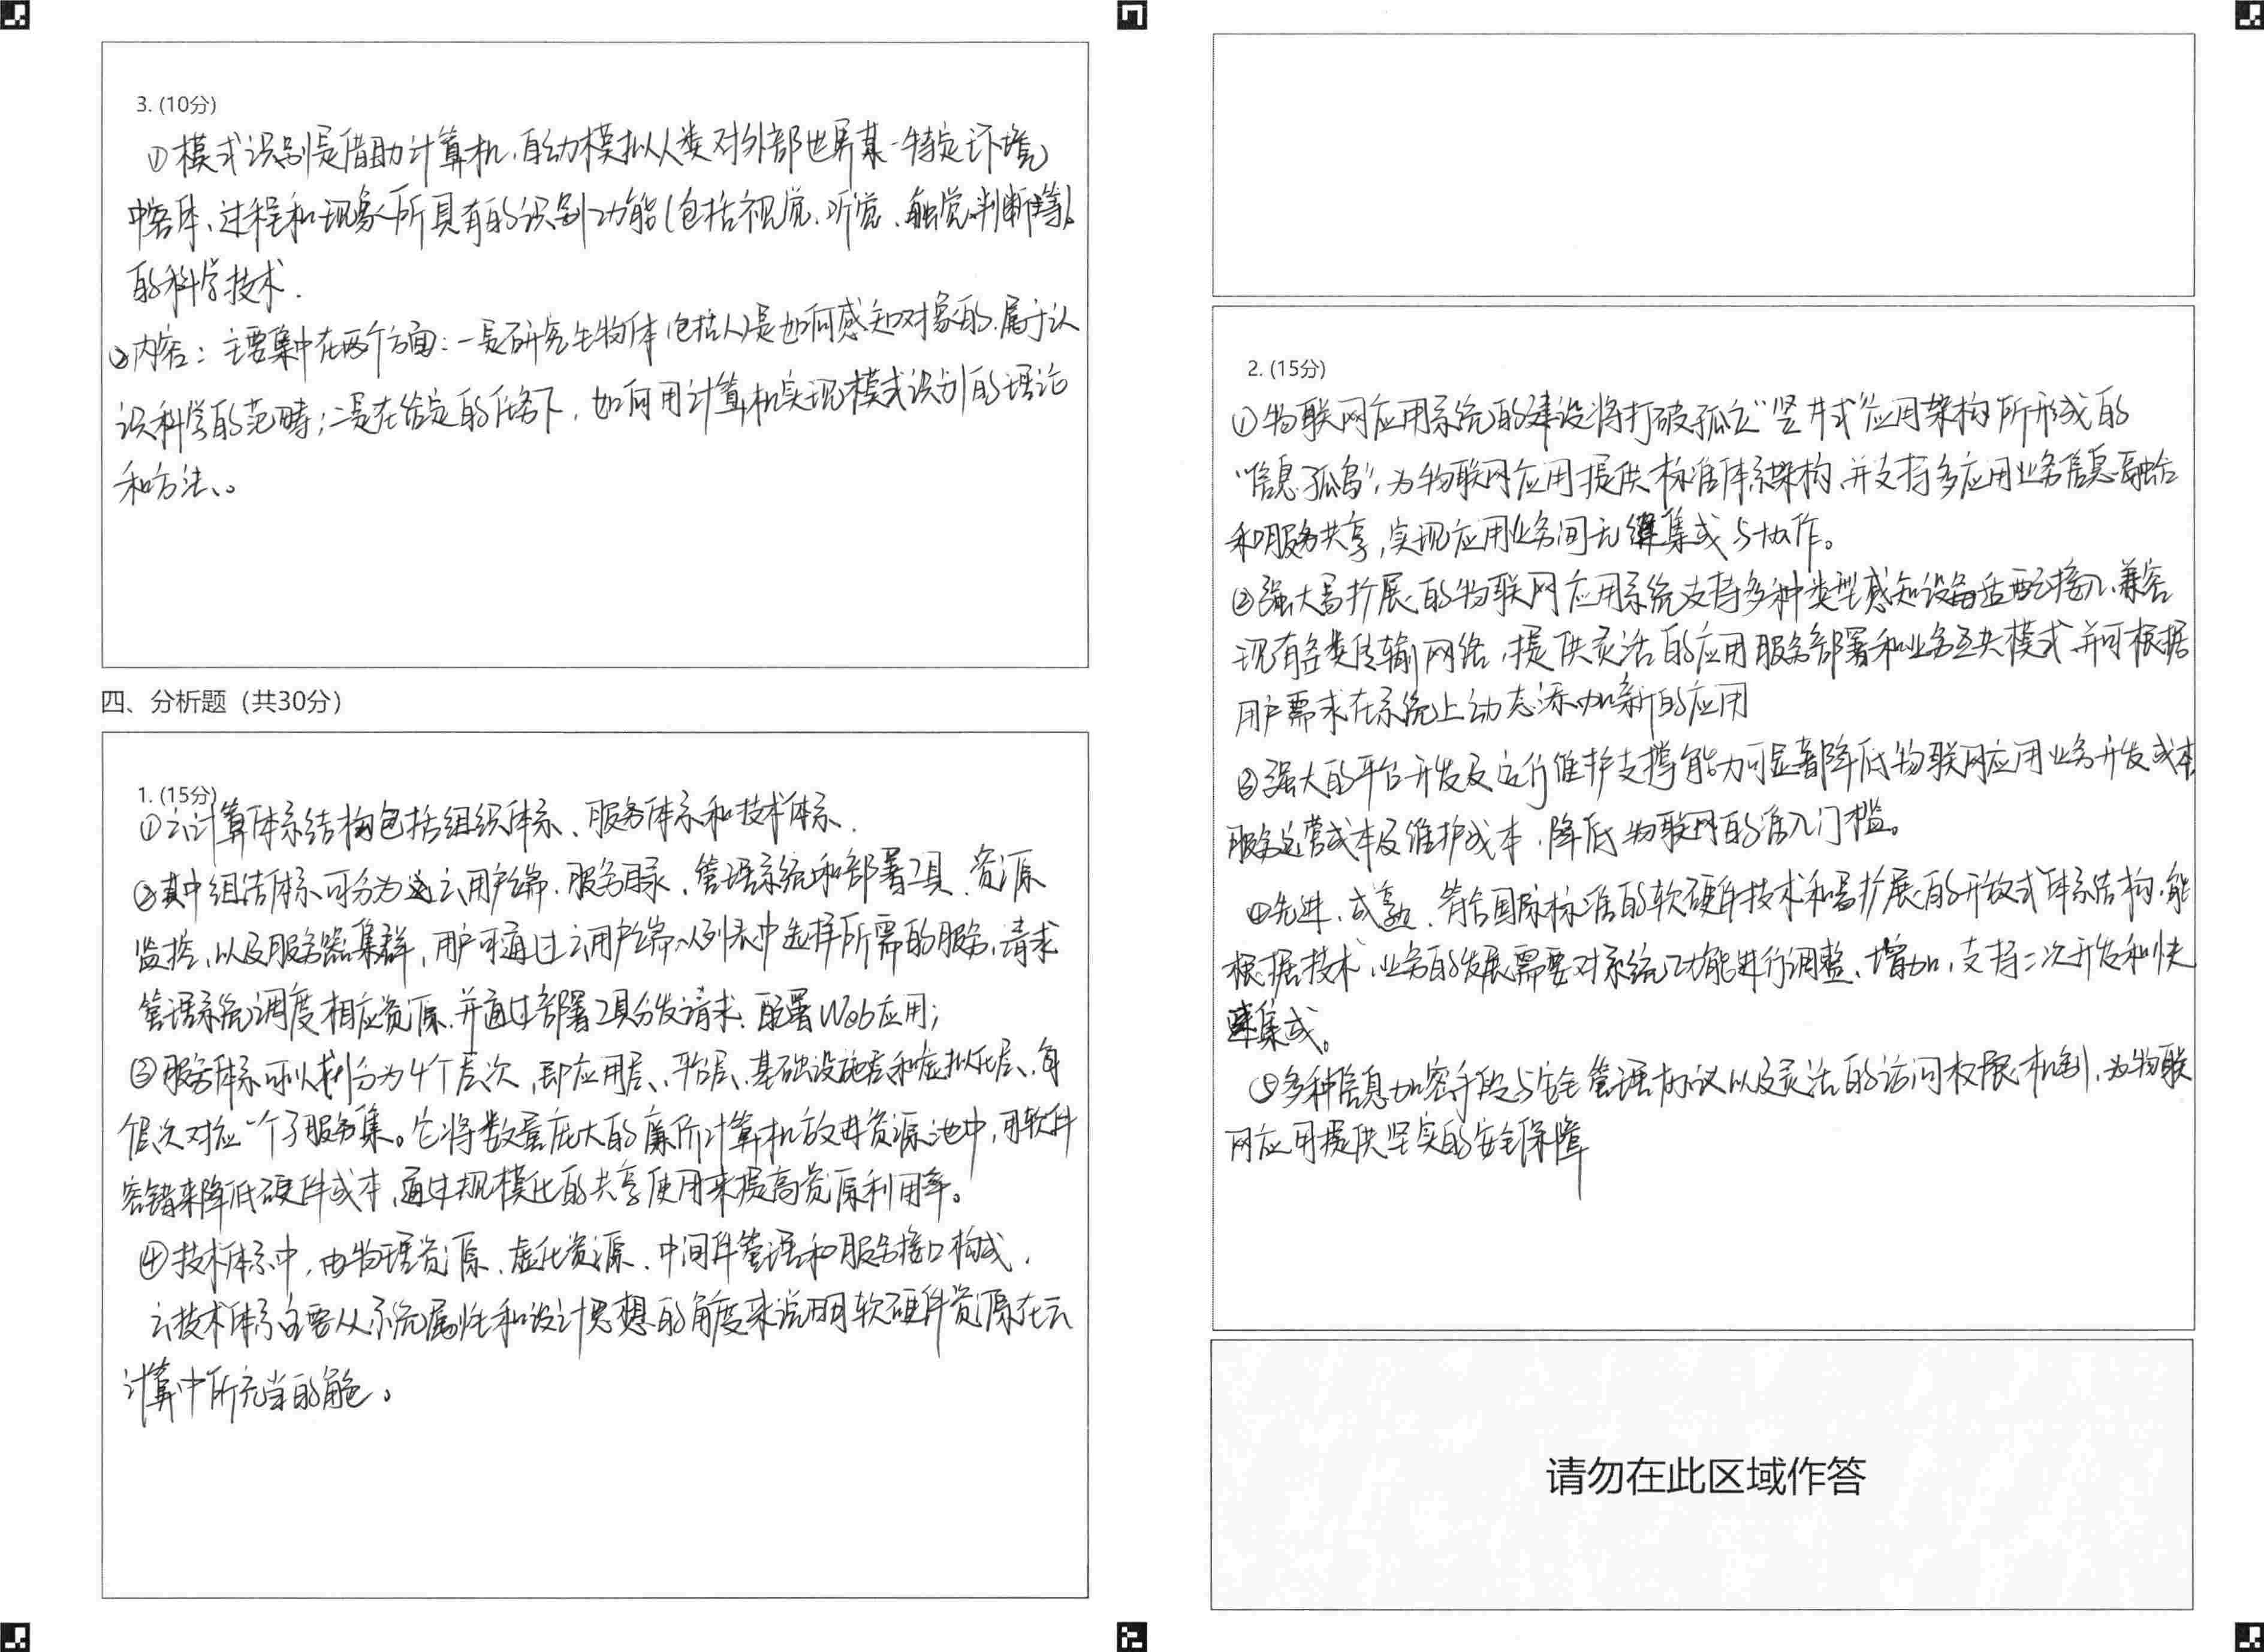 3. (10分)
①模式识别是借助计算机,自动模拟人类对外部世界某一特定环境
中客体、过程和现象所具有的识别功能(包括视觉、听觉、触觉、判断等)
的科学技术.
②内容:主要集中在两个方面:一是研究生物体(包括人)是如何感知对象的,属于认
识科学的范畴;二是在给定的任务下,如何用计算机实现模式识别的理论
和方法。
四、分析题(共30分)
1. (15分)
①云计算体系结构包括组织体系、服务体系和技术体系.
②其中组织体系可分为云用户端、服务目录、管理系统和部署工具、资源
监控,以及服务器集群,用户可通过云用户端从列表中选择所需的服务,请求
管理系统调度相应资源,并通过部署工具分发请求、配置Web应用;
③服务体系可以划分为4个层次,即应用层、平台层、基础设施层和虚拟化层,每
个层次对应一个子服务集。它将数量庞大的廉价计算机放进资源池中,用软件
容错来降低硬件成本,通过规模化的共享使用来提高资源利用率。
④技术体系中,由物理资源、虚化资源、中间件管理和服务接口构成.
云技术体系主要从系统属性和设计思想的角度来说明软硬件资源在云
计算中所充当的角色。
2. (15分)
①物联网应用系统的建设将打破孤立“竖井式”应用架构所形成的
“信息孤岛”,为物联网应用提供标准体系架构,并支持多应用业务信息融合
和服务共享,实现应用业务间无缝集成与协作。
②强大易扩展的物联网应用系统支持多种类型感知设备适配接入,兼容
现有各类传输网络,提供灵活的应用服务部署和业务互共模式,并可根据
用户需求在系统上动态添加新的应用
③强大的平台开发及运行维护支撑能力可显著降低物联网应用业务开发成本
服务运营成本及维护成本,降低物联网的准入门槛。
④先进、成熟、符合国际标准的软硬件技术和易扩展的开放式体系结构,能
根据技术、业务的发展需要对系统功能进行调整、增加,支持二次开发和快
速集成。
⑤多种信息加密手段与安全管理协议以及灵活的访问权限机制,为物联
网应用提供坚实的安全保障
请勿在此区域作答